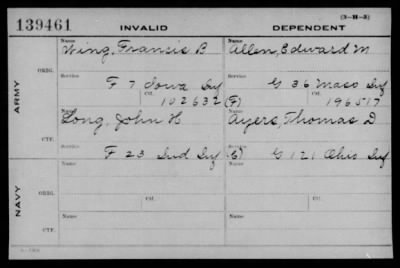 (3-H-3)
139461 INVALID DEPENDENT
Name Name
Wing, Francis B Allen, Edward M
ORIG. Service Service
F 7 Iowa Inf G 36 Mass Inf
Ctf. Ctf.
102632 (F) 196517
ARMY
Name Name
Long, John H Ayers, Thomas D
Service Service
F 23 Ind Inf (C) G 121 Ohio Inf
Ctf. Ctf.
Name Name
ORIG. Service Service
Ctf. Ctf.
NAVY
Name Name